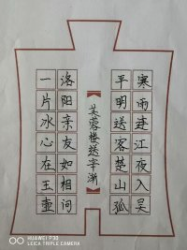 寒雨连江夜入吴
平明送客楚山孤
芙蓉楼送辛渐
洛阳亲友如相问
一片冰心在玉壶
HUAWEI P30
LEICA TRIPLE CAMERA